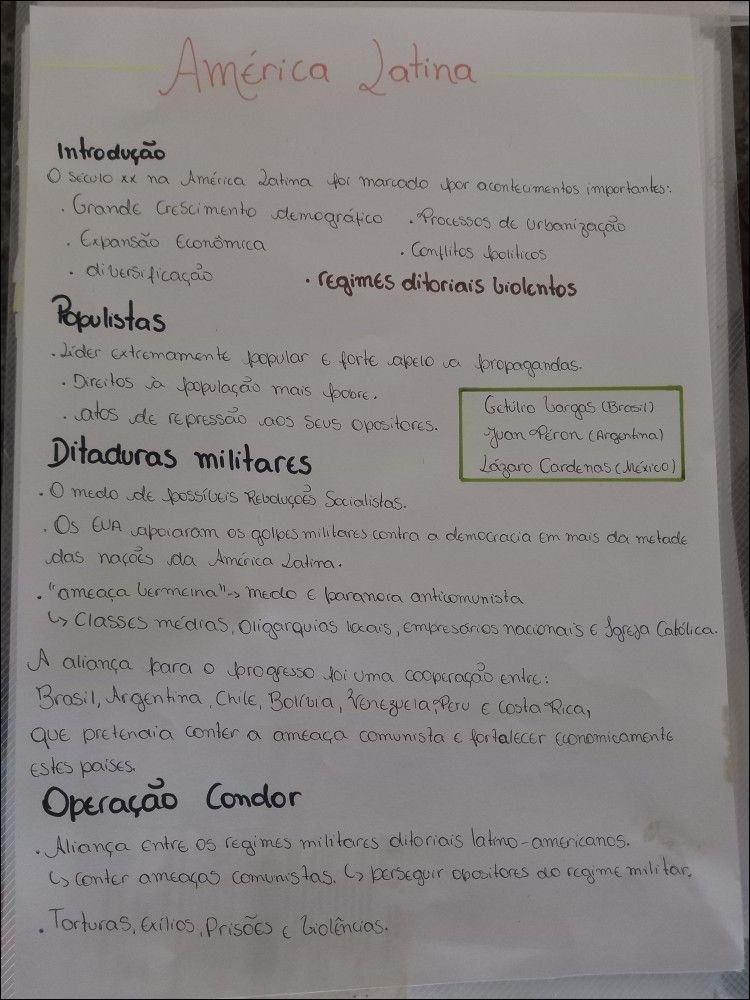 América Latina
Introdução
O século xx na América Latina foi marcado por acontecimentos importantes:
. Grande crescimento demográfico . Processos de urbanização
. Expansão Econômica . Conflitos políticos
. diversificação . regimes ditoriais violentos
Populistas
. Líder extremamente popular e forte apelo a propagandas.
. Direitos à população mais pobre.
. atos de repressão aos seus opositores.
Getúlio Vargas (Brasil)
Juan Péron (Argentina)
Lázaro Cardenas (México)
Ditaduras militares
. O medo de possíveis Revoluções Socialistas.
. Os EUA apoiaram os golpes militares contra a democracia em mais da metade
das nações da América Latina.
. "ameaça vermelha" -> medo e paranoia anticomunista
↳ Classes médias, Oligarquias locais, empresários nacionais e Igreja Católica.
A aliança para o progresso foi uma cooperação entre:
Brasil, Argentina, Chile, Bolívia, Venezuela, Peru e Costa Rica,
que pretendia conter a ameaça comunista e fortalecer economicamente
estes países.
Operação Condor
. Aliança entre os regimes militares ditoriais latino-americanos.
↳ conter ameaças comunistas. ↳ perseguir opositores do regime militar.
. Torturas, Exílios, Prisões e violências.